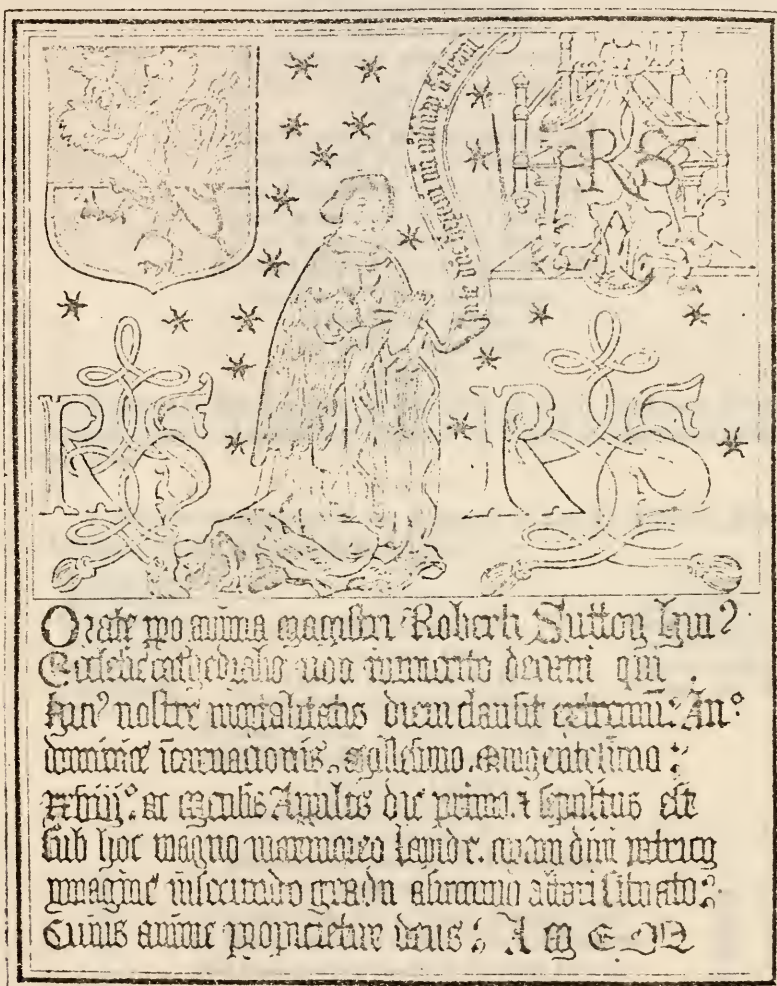 Inte dñe
RS
RS
RS
Orate pro anima magistri Roberti Sutton huiꝰ
Ecclesie cathedralis non inmerito decani qui
huiꝰ nostre mortalitatis diem clausit extremū: Anº
dominice īcarnacionis. Millesimo. quingentesimo:
ac mensis Aprilis die primo. & sepultus est
sub hoc magno marmoreo lapide. coram divi patricij
ymagine in secundo gradu a summo altari situato:
Cuius anime propicietur deus: AMEN